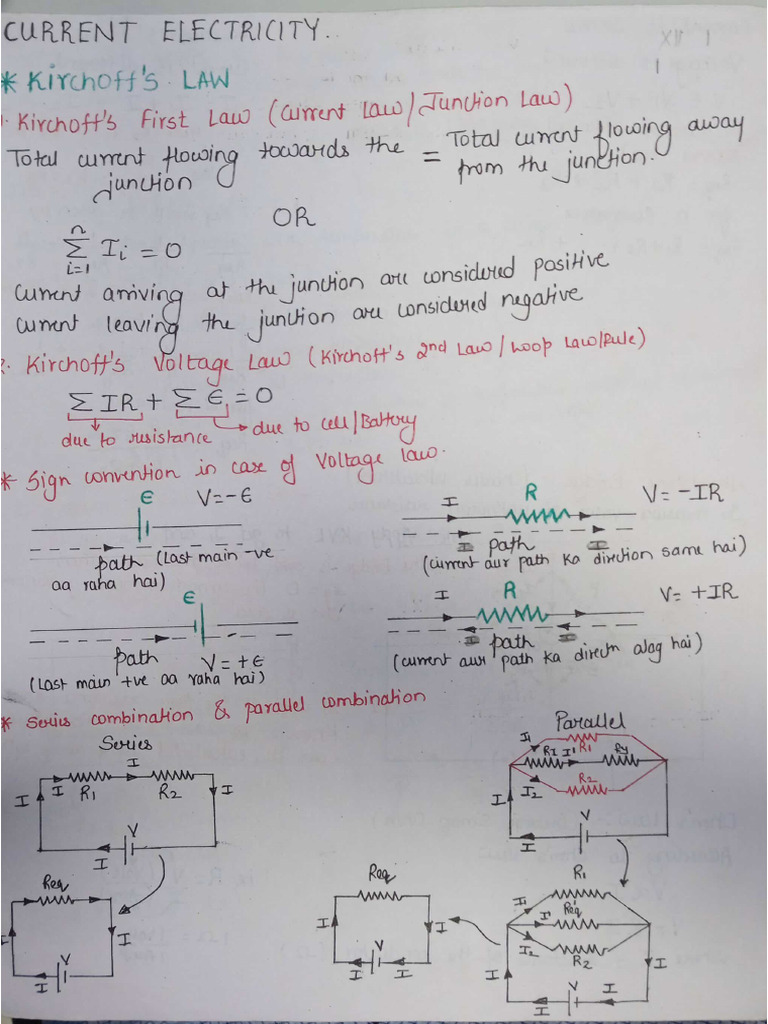 CURRENT ELECTRICITY.
XII 1
1
* Kirchoff's LAW
1. Kirchoff's First Law (Current Law/Junction Law)
Total current flowing towards the junction = Total current flowing away from the junction.
OR
n
Σ Ii = 0
i=1
Current arriving at the junction are considered positive
Current leaving the junction are considered negative
2. Kirchoff's Voltage Law (Kirchoff's 2nd Law/Loop Law/Rule)
Σ IR + Σ ε = 0
due to resistance
due to cell/Battery
* Sign convention in case of Voltage law.
ε V=-ε
path (Last main -ve
aa raha hai)
I R V= -IR
I path I
(current aur path ka direction same hai)
ε
path V=+ε
(Last main +ve aa raha hai)
I R V= +IR
I path I
(current aur path ka directn alag hai)
* Series combination & parallel combination
Series
I
I I R1 R2 I
V
I
Parallel
I1 R1
RI I' Ry
R2
I I2
V
I
Req
I I
V
I
Req
I I
V
I I
R1
I1
I' Req'
I2
R2
I I
V
I I